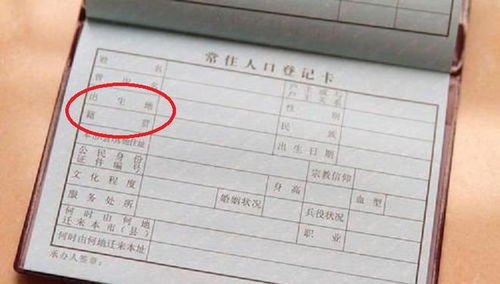 常住人口登记卡
姓名 户主或与
户主关系
曾用名 性别
出生地 民族
籍贯 出生日期
本市(县)其他住址 宗教信仰
公民身份
证件编号 身高 血型
文化程度 婚姻状况 兵役状况
服务处所 职业
何时由何地
迁来本市(县)
何时由何地迁来本址
承办人签章: